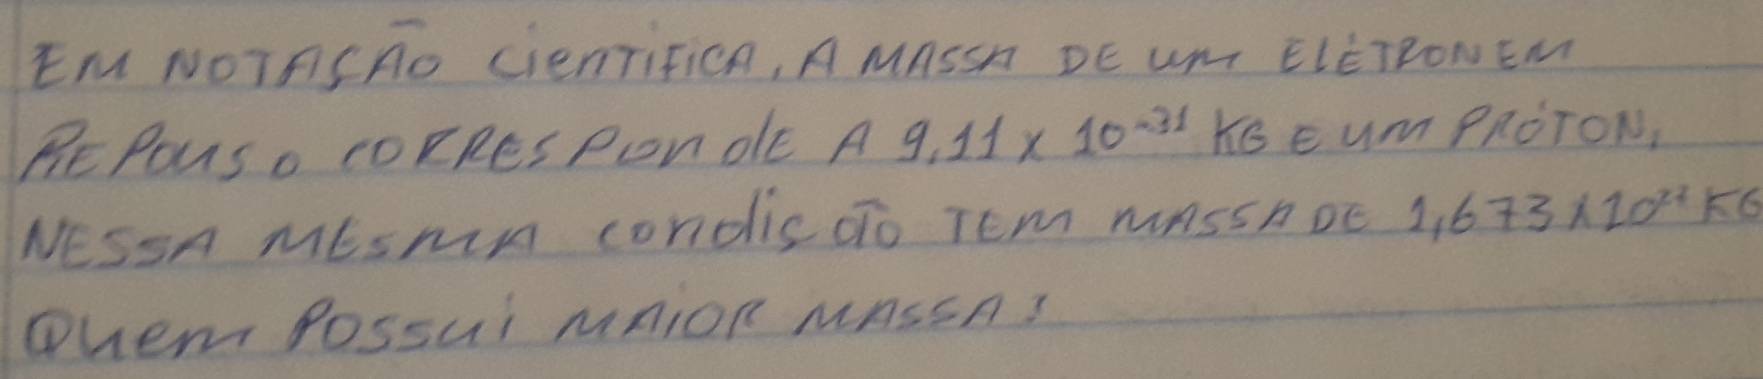 EM NOTAÇÃO CIENTIFICA, A MASSA DE UM ELÉTRON EM
REPOUSO CORRESPONDE A 9,11 x 10⁻³¹ KG E UM PRÓTON,
NESSA MESMA CONDIÇÃO TEM MASSA DE 1,673 x 10 KG
QUEM POSSUI MAIOR MASSA?